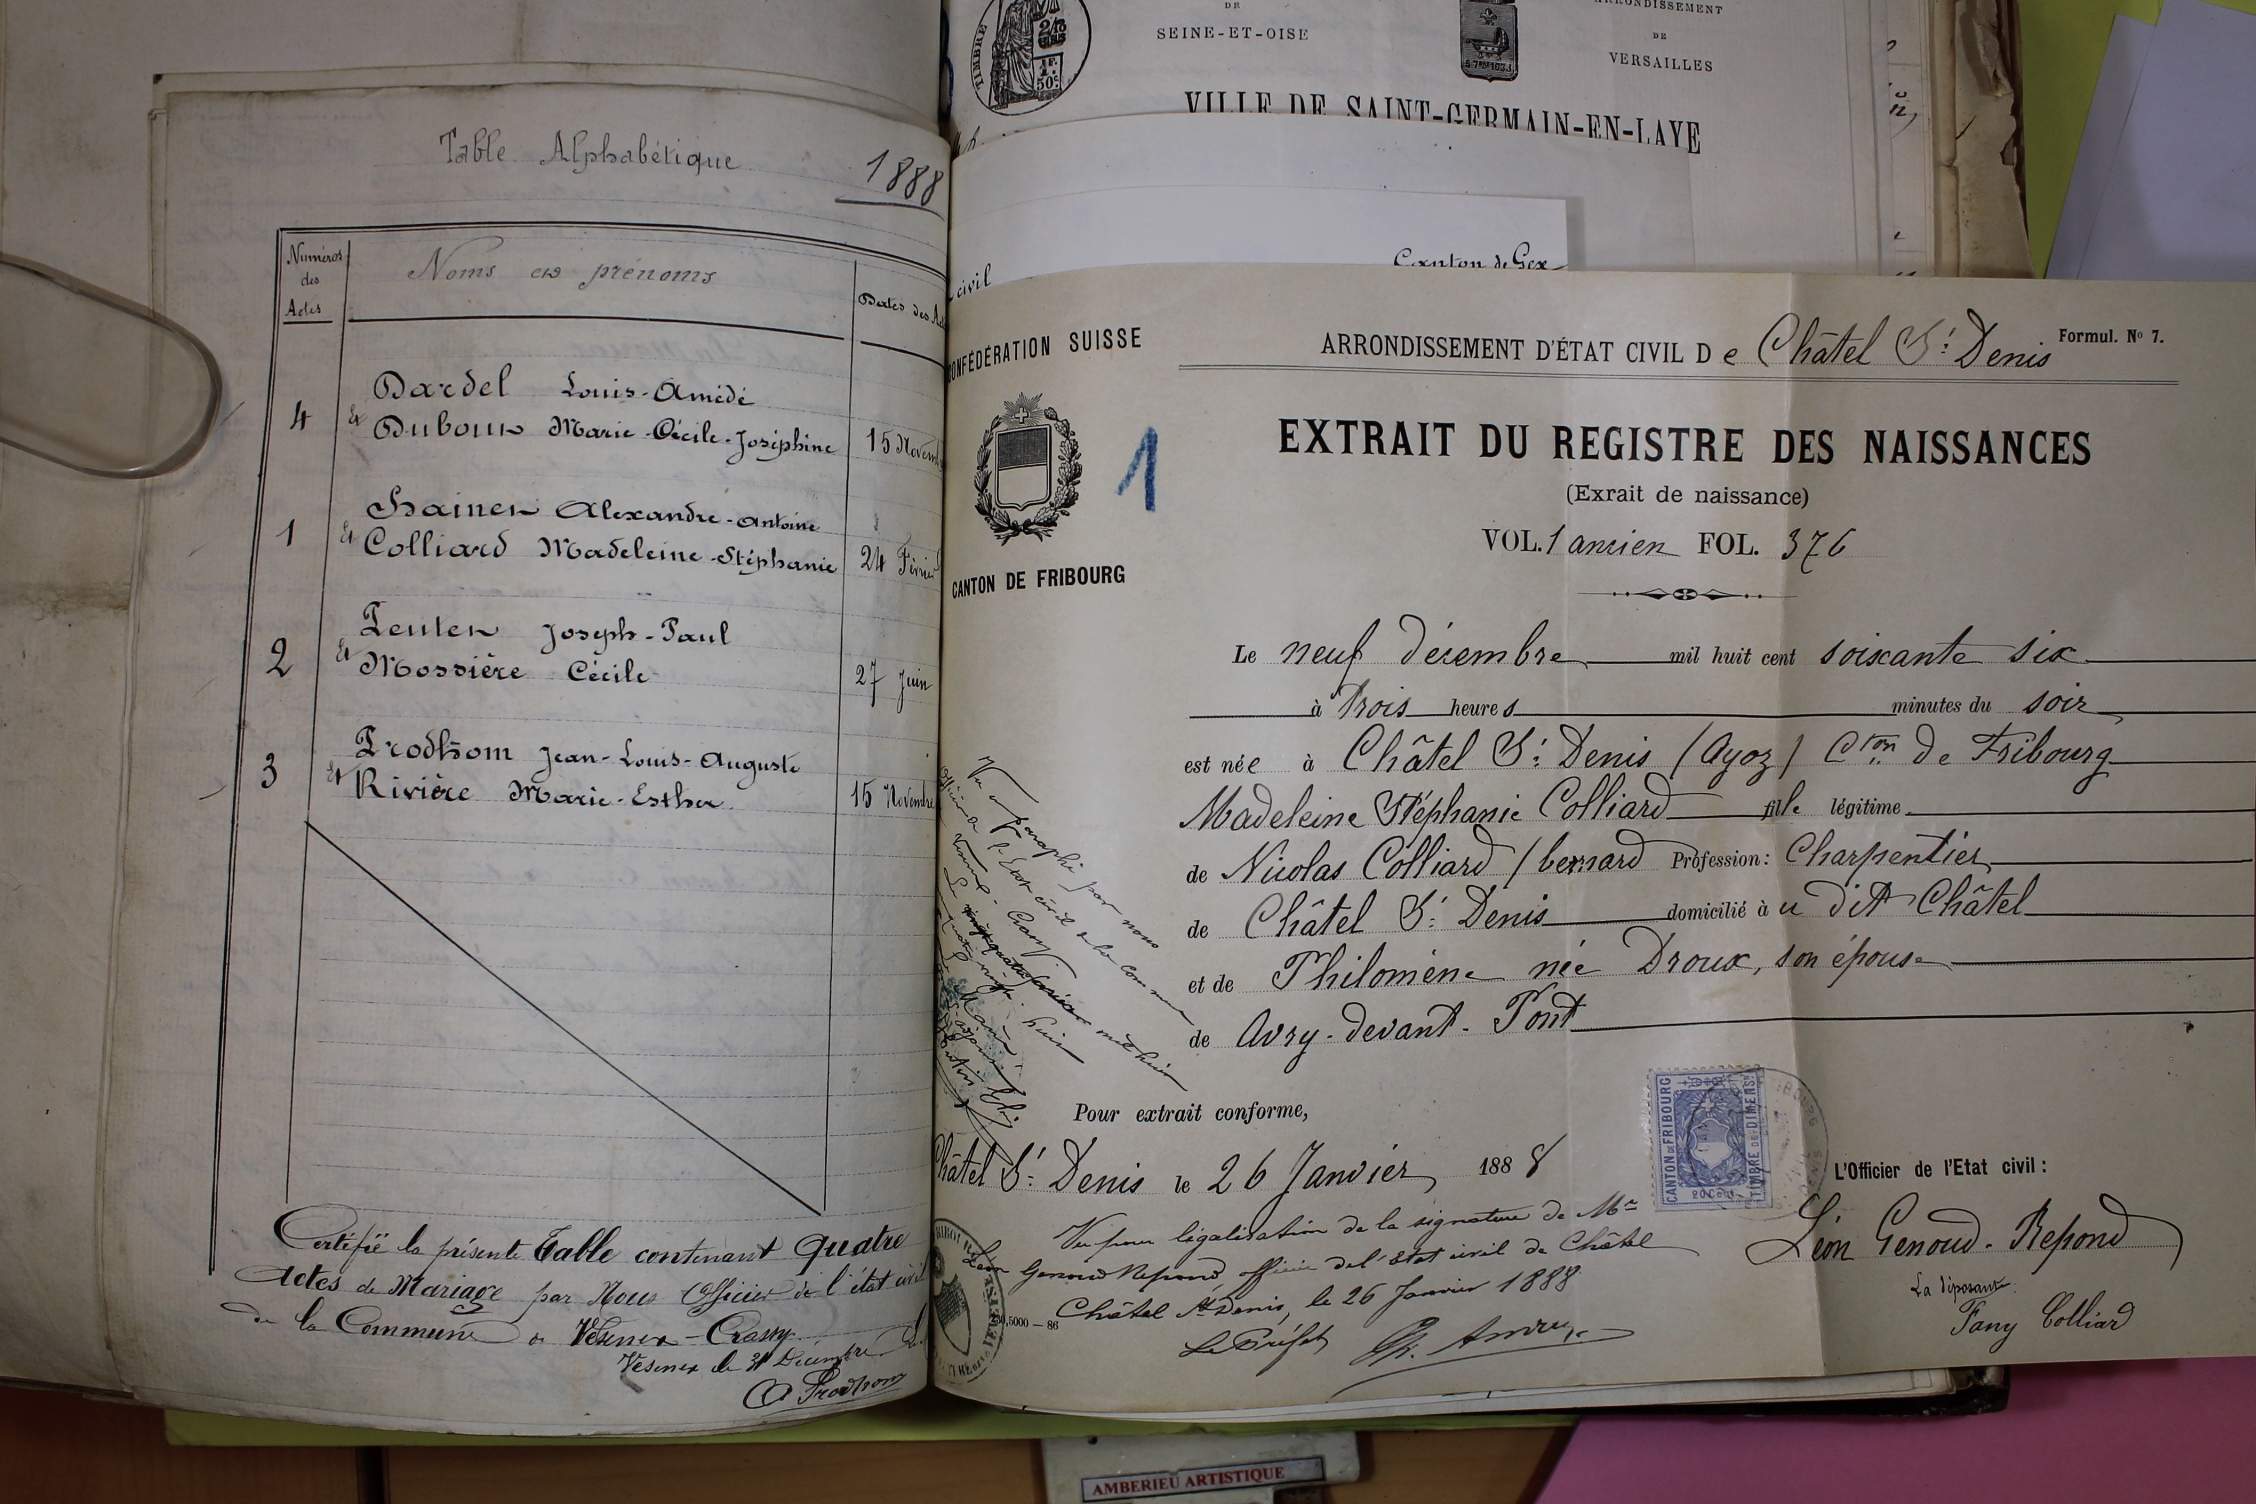 Table Alphabétique 1888
Numéros des Actes
Noms et prénoms
Dates des
Dardel Louis-Amédé
4 Et Duboux Marie-Cécile-Joséphine 15
Hainer Alexandre-Antoine
1 Et Colliard Madeleine-Stéphanie 24
Penter Joseph-Paul
2 Et Mossière Cécile 27 Juin
Prodhom Jean-Louis-Auguste
3 Et Rivière Marie-Esther 15 Novembre
Certifié la présente Table contenant quatre
Actes de Mariage par Nous Officier de l'état civil
de la Commune de Vésenex-Crassy
Vésenex le 31 Décembre
Prodhom
TIMBRE
DE
SEINE-ET-OISE
ARRONDISSEMENT
DE
VERSAILLES
VILLE DE SAINT-GERMAIN-EN-LAYE
civil
Canton de Gex
CONFÉDÉRATION SUISSE
CANTON DE FRIBOURG
1
ARRONDISSEMENT D'ÉTAT CIVIL De Châtel St Denis
Formul. No 7.
EXTRAIT DU REGISTRE DES NAISSANCES
(Exrait de naissance)
VOL. 1 ancien FOL. 376
Le neuf décembre mil huit cent soixante six
à trois heures minutes du soir
est née à Châtel St Denis (Ayoz) Cton de Fribourg
Madeleine Stéphanie Colliard fille légitime
de Nicolas Colliard / bernard Profession: Charpentier
de Châtel St Denis domicilié à u dit Châtel
et de Philomène née Droux, son épouse
de Avry-devant-Pont
Vu et paraphé par nous
Officier de l'Etat civil de la commune
Pour extrait conforme,
Châtel St Denis le 26 Janvier 1888
CANTON DE FRIBOURG
TIMBRE DE DIMENS
L'Officier de l'Etat civil:
Léon Genoud-Repond
La déposante
Fany Colliard
Vu pour légalisation de la signature de Mr
Léon Genoud Repond, officier de l'état civil de Châtel
Châtel St Denis, le 26 Janvier 1888
Le Préfet
5000 — 86
AMBERIEU ARTISTIQUE